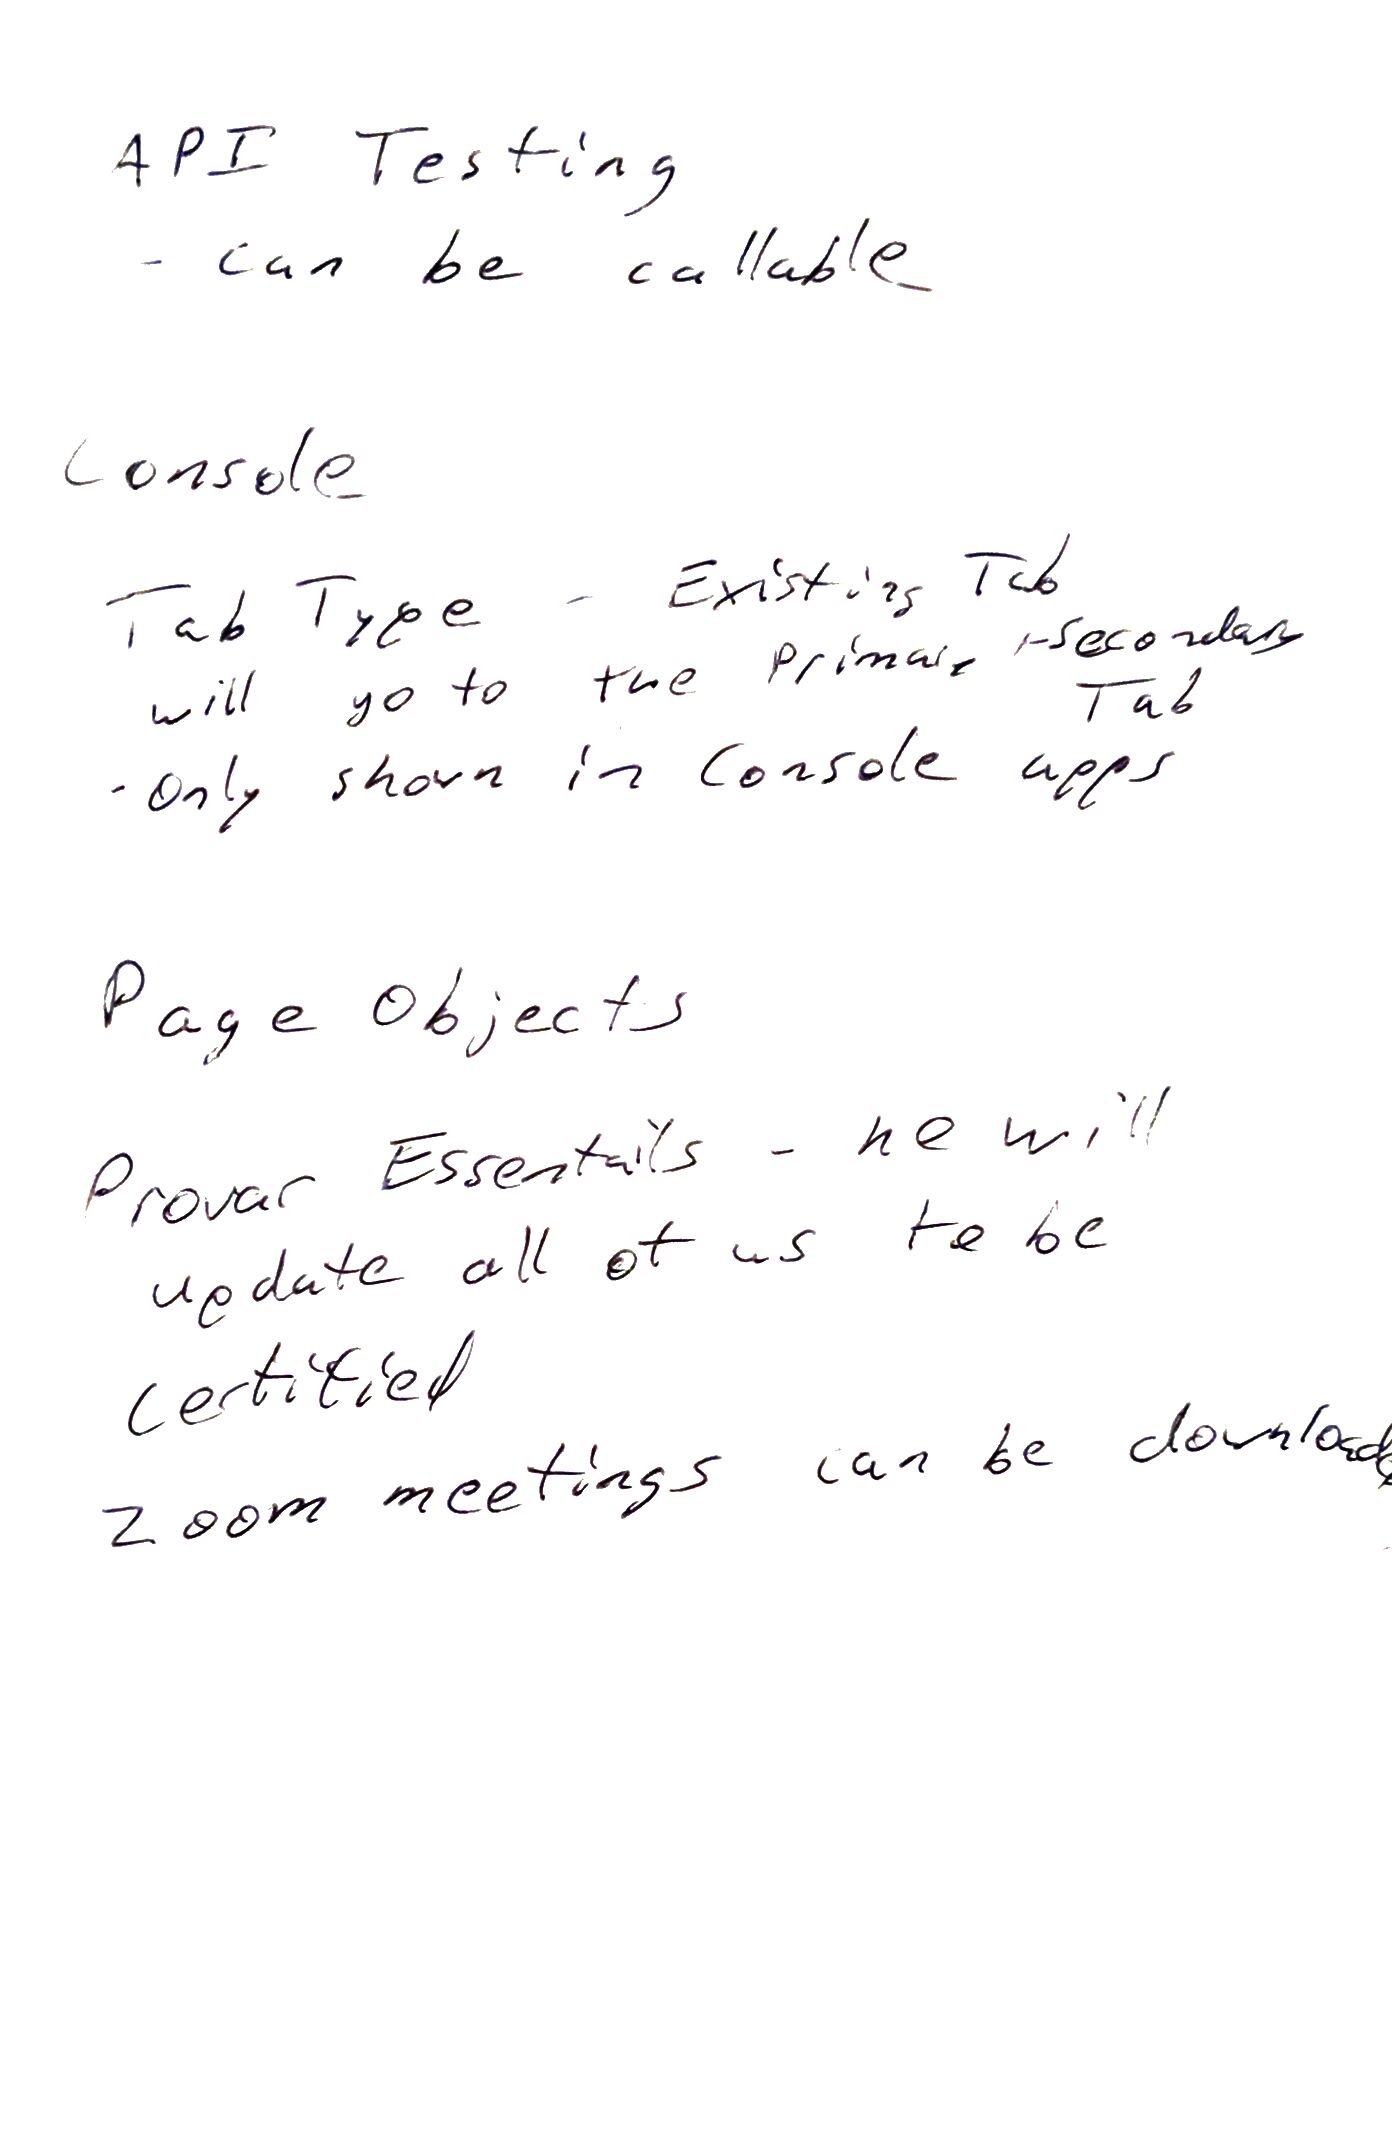 API Testing
- can be callable
Console
Tab Type - Existing Tab
will go to the Primary + Secondary
Tab
- Only shown in Console apps
Page Objects
Provar Essentails - he will
update all of us to be
certified
Zoom meetings can be downloaded